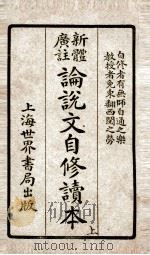 自修者有無師自通之樂
教授者免東翻西閱之勞
新體
廣註
論說文自修讀本
上
上海世界書局出版